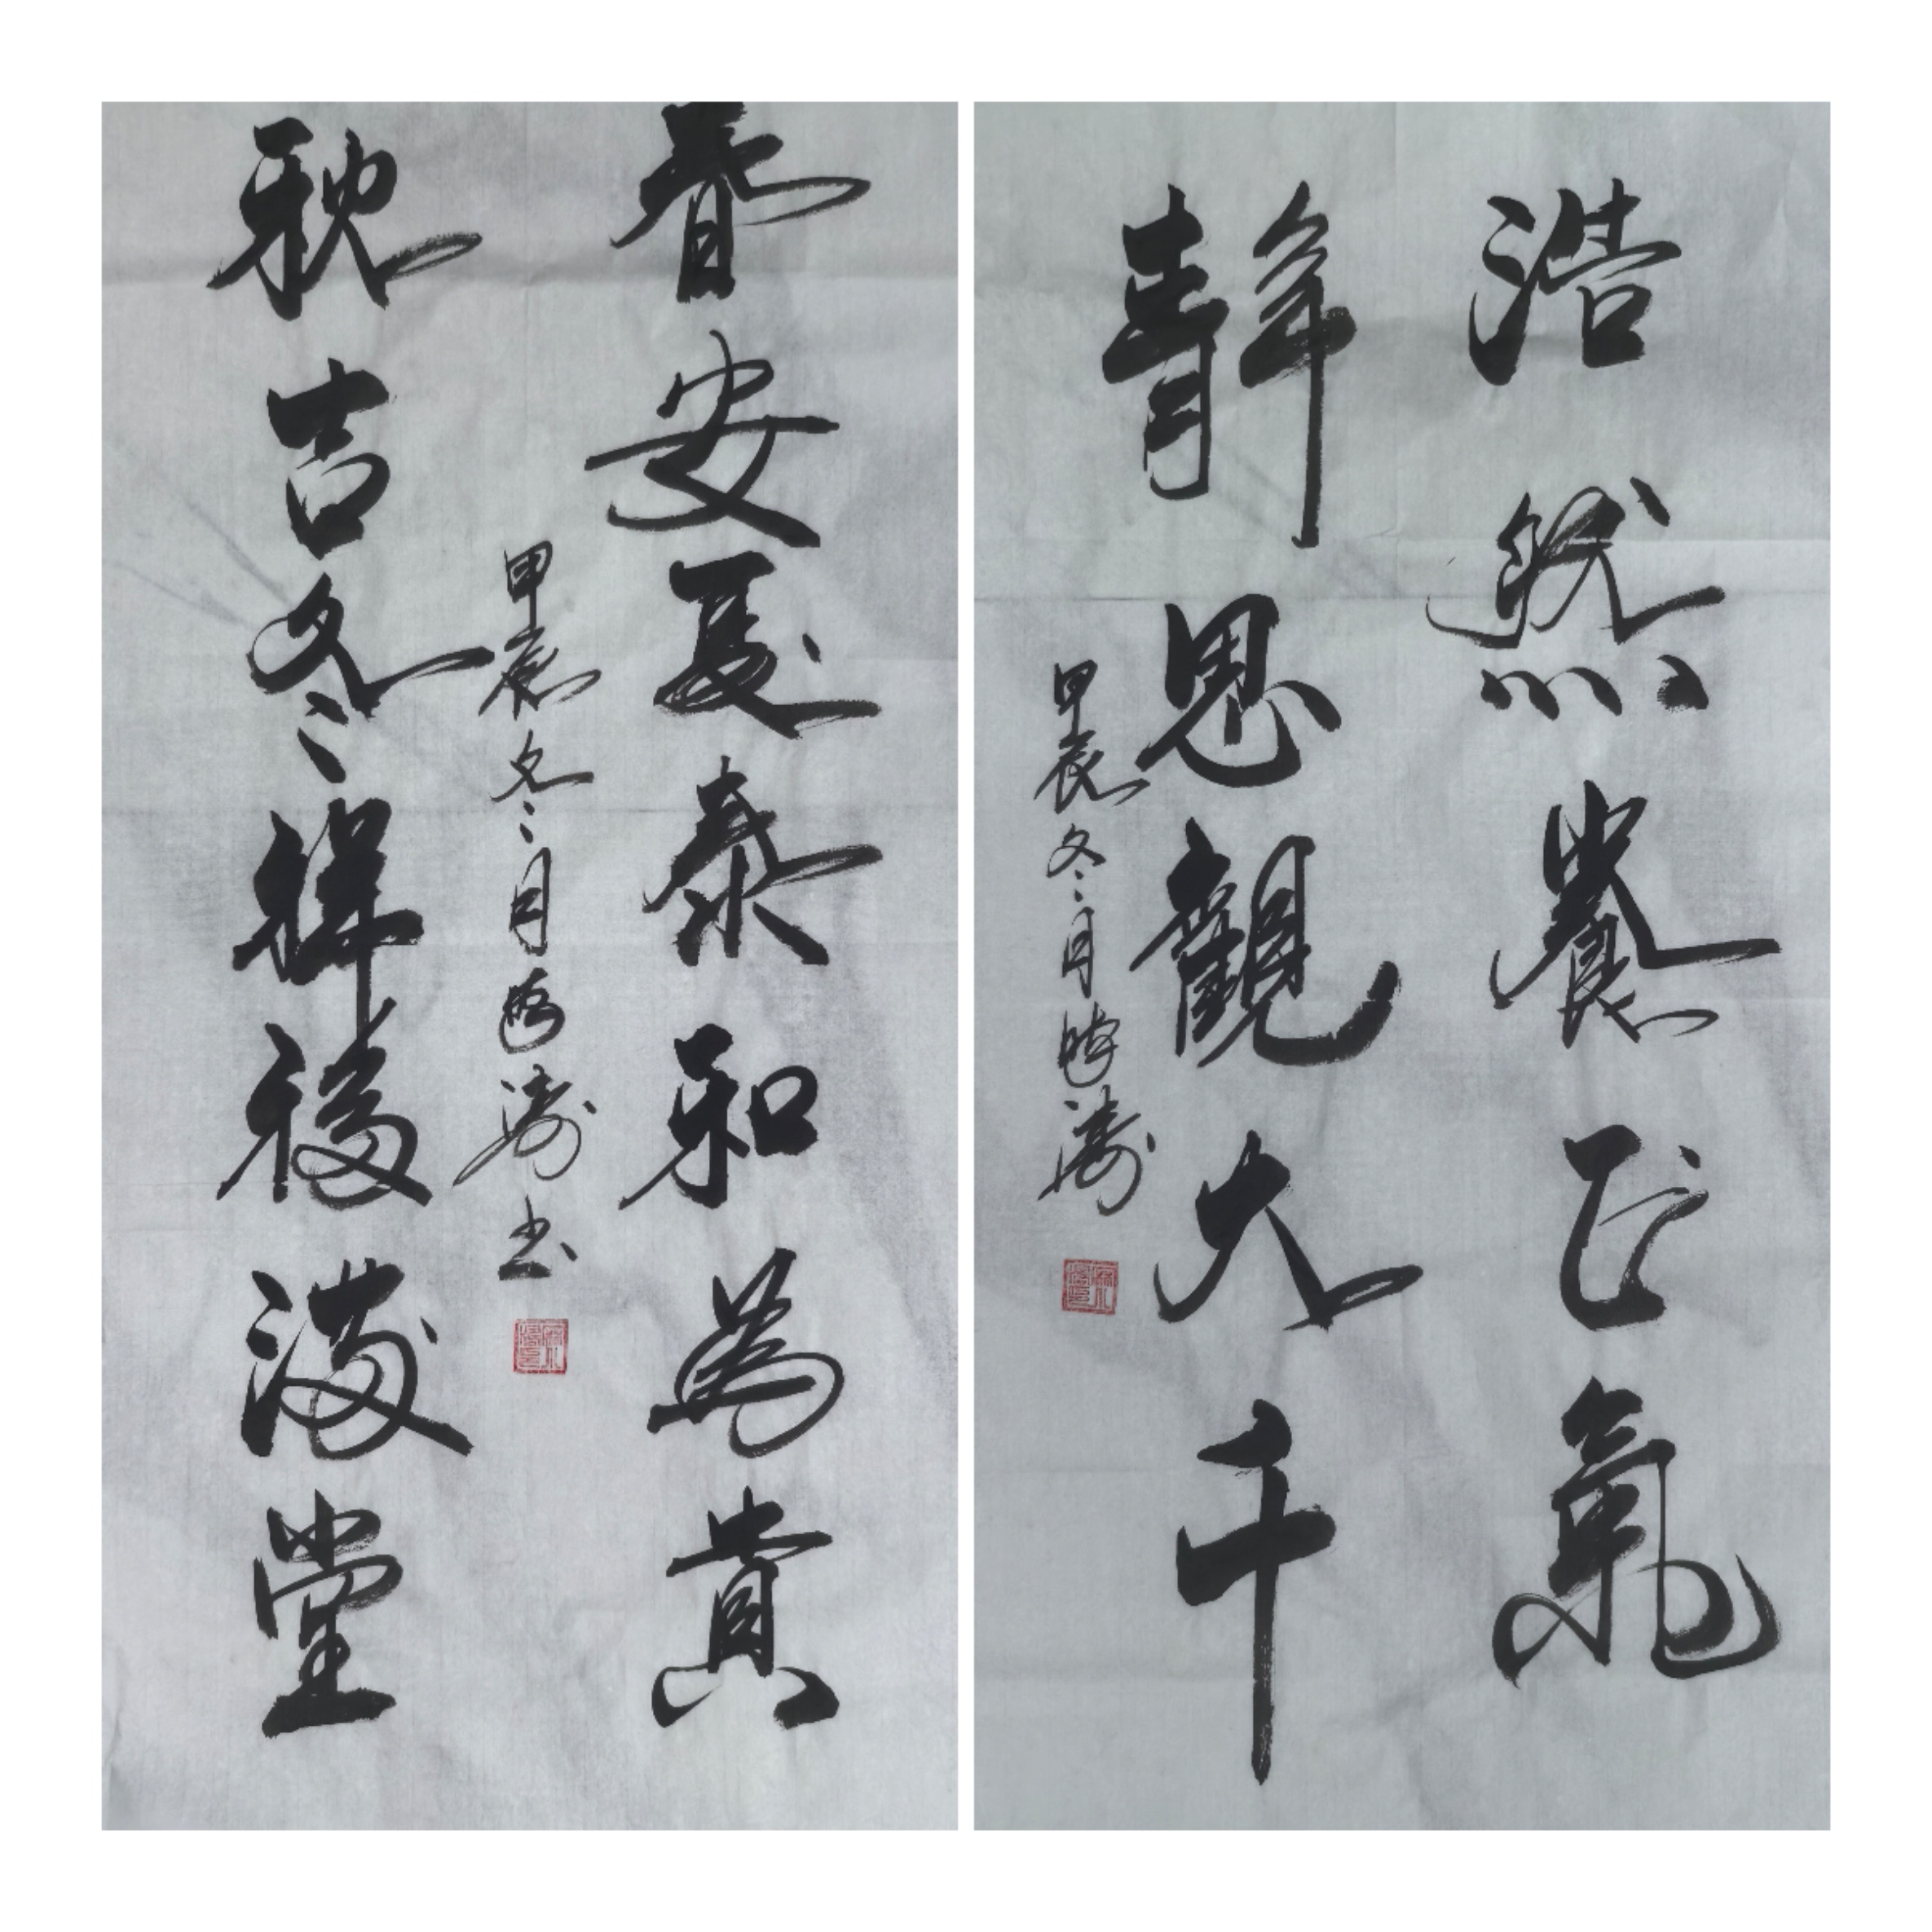 浩然養正氣
静思觀大千
甲辰冬月 濤
春安夏泰和為貴
秋吉冬祥福滿堂
甲辰冬月 濤书